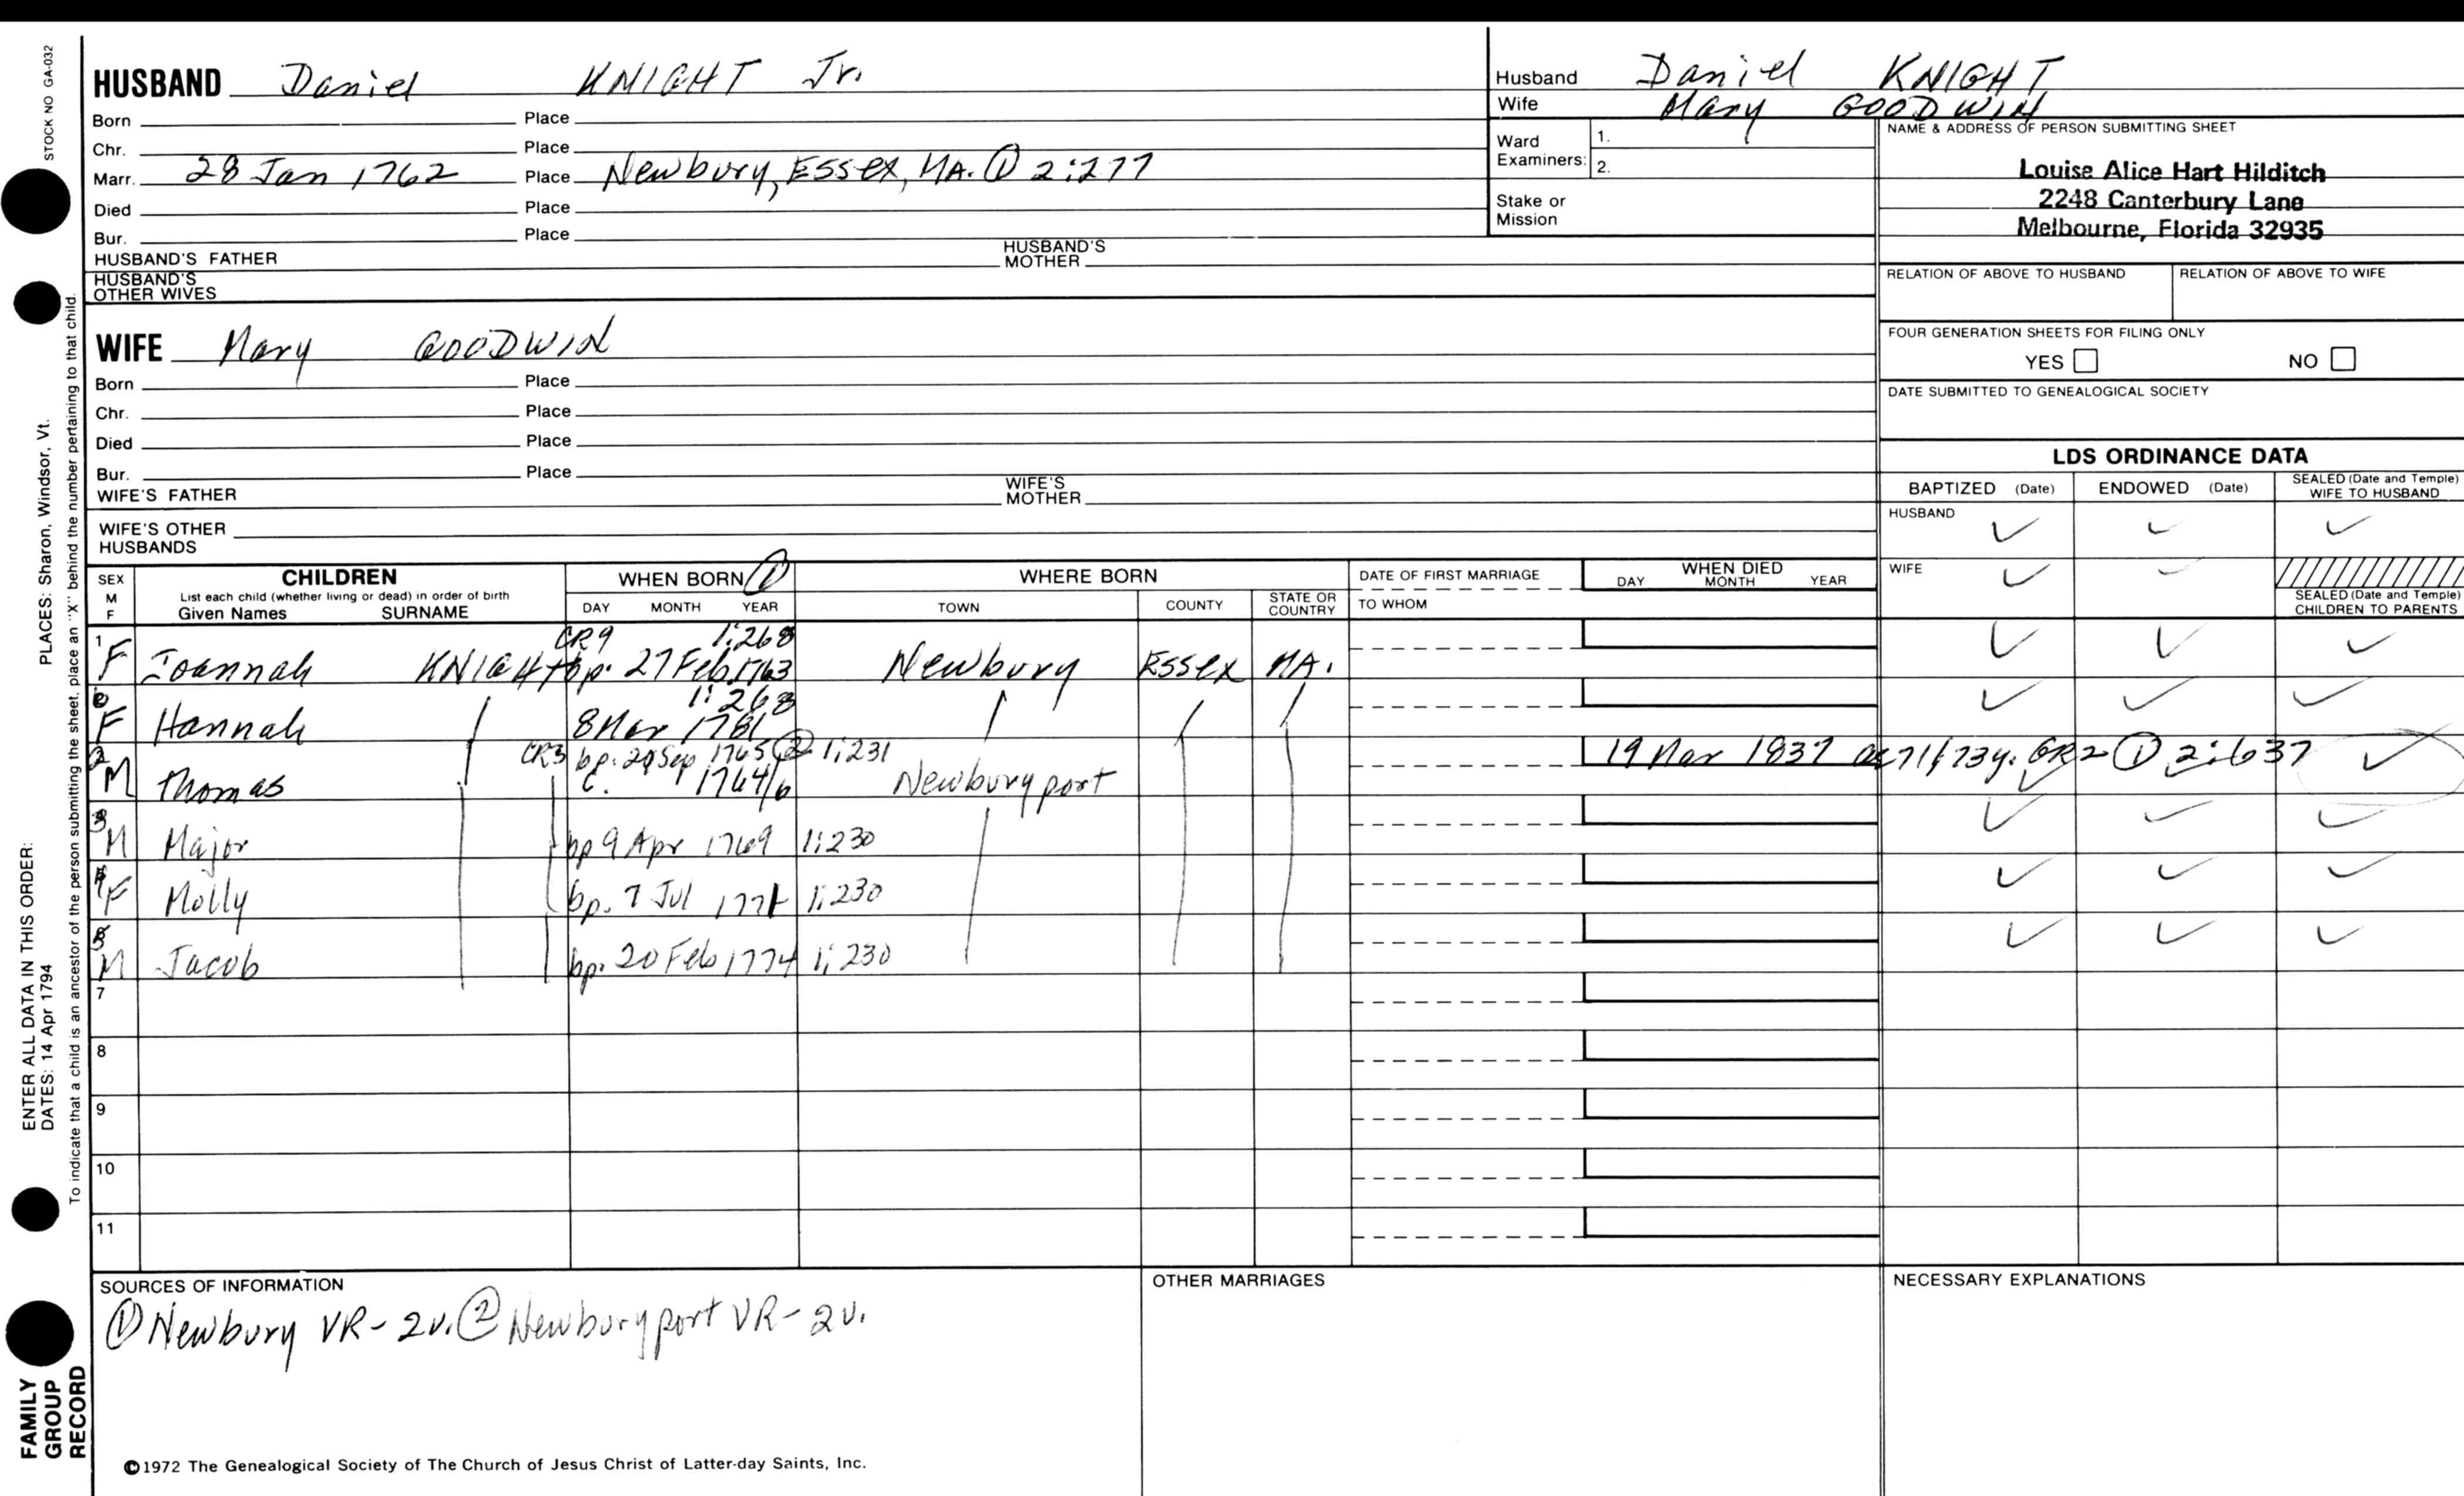 STOCK NO GA-032
PLACES: Sharon, Windsor, Vt.
ENTER ALL DATA IN THIS ORDER:
DATES: 14 Apr 1794
To indicate that a child is an ancestor of the person submitting the sheet, place an "X" behind the number pertaining to that child.
FAMILY
GROUP
RECORD
HUSBAND Daniel KNIGHT Jr.
Born Place
Chr. Place
Marr. 28 Jan 1762 Place Newbury, Essex, MA. ① 2:277
Died Place
Bur. Place
HUSBAND'S FATHER HUSBAND'S MOTHER
HUSBAND'S OTHER WIVES
WIFE Mary GOODWIN
Born Place
Chr. Place
Died Place
Bur. Place
WIFE'S FATHER WIFE'S MOTHER
WIFE'S OTHER HUSBANDS
Husband Daniel KNIGHT
Wife Mary GOODWIN
Ward Examiners: 1.
2.
Stake or Mission
NAME & ADDRESS OF PERSON SUBMITTING SHEET
Louise Alice Hart Hilditch
2248 Canterbury Lane
Melbourne, Florida 32935
RELATION OF ABOVE TO HUSBAND RELATION OF ABOVE TO WIFE
FOUR GENERATION SHEETS FOR FILING ONLY
YES NO
DATE SUBMITTED TO GENEALOGICAL SOCIETY
LDS ORDINANCE DATA
BAPTIZED (Date) ENDOWED (Date) SEALED (Date and Temple) WIFE TO HUSBAND
HUSBAND ✓ ✓ ✓
WIFE ✓ ✓
SEALED (Date and Temple) CHILDREN TO PARENTS
SEX M F
CHILDREN
List each child (whether living or dead) in order of birth
Given Names SURNAME
WHEN BORN ①
DAY MONTH YEAR
WHERE BORN
TOWN COUNTY STATE OR COUNTRY
DATE OF FIRST MARRIAGE
TO WHOM
WHEN DIED
DAY MONTH YEAR
CR9 1:268
1 F Joannah KNIGHT bp. 27 Feb 1763 Newbury Essex MA. ✓ ✓ ✓
1:268
F Hannah 8 Mar 1781 ✓ ✓ ✓
CR3 bp. 29 Sep 1765 ② 1:231
2 M Thomas c. 1764/6 Newburyport 19 Mar 1837 ae 71/73y. GR2 ① 2:637 ✓ ✓
3 M Major bp 9 Apr 1769 1:230 ✓ ✓ ✓
4 F Molly bp. 7 Jul 1771 1:230 ✓ ✓ ✓
5 M Jacob bp. 20 Feb 1774 1:230 ✓ ✓ ✓
7
8
9
10
11
SOURCES OF INFORMATION
① Newbury VR-2v. ② Newburyport VR-2v.
OTHER MARRIAGES
NECESSARY EXPLANATIONS
©1972 The Genealogical Society of The Church of Jesus Christ of Latter-day Saints, Inc.